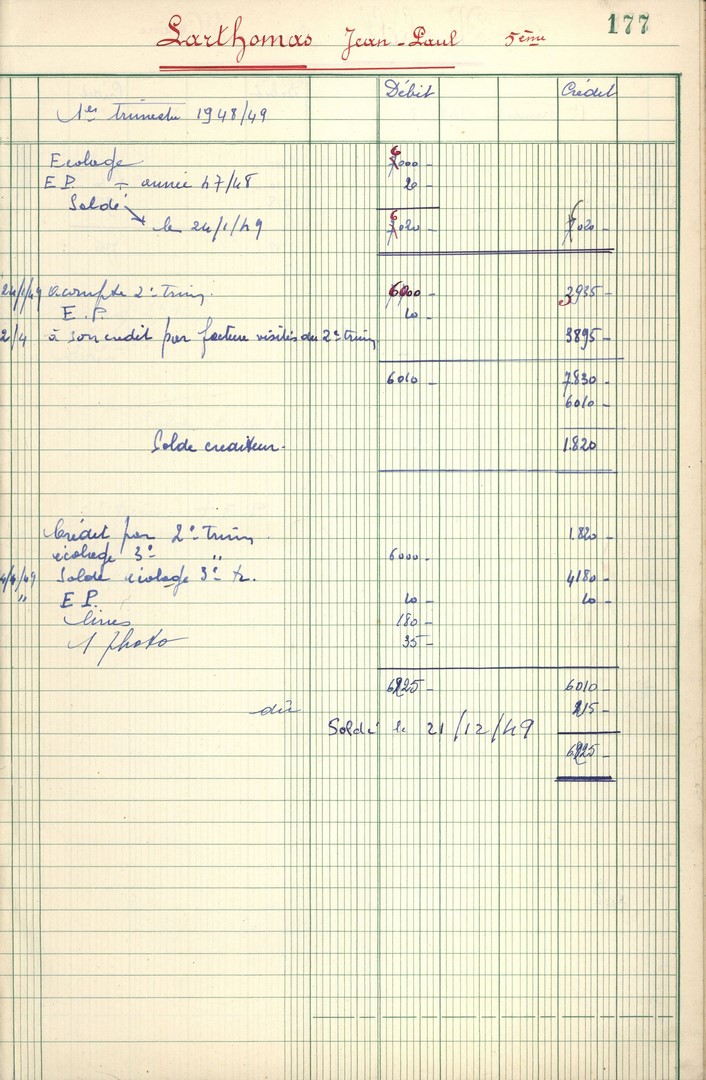 177
Larthomas Jean-Paul 5ème
Débit Crédit
1er trimestre 1948/49
Ecolage 6000 -
E.P. + année 47/48 20 -
Soldé
le 24/1/49 6020 - 7020 -
24/1/49 Acompte 2e Trim. 6000 - 3935 -
E.P. 10 -
2/4 à son crédit par facture visites du 2e trim. 3895 -
6010 - 7.830 -
6010 -
Solde crediteur - 1.820
Crédit par 2e Trim 1.820 -
écolage 3e " 6000 -
4/4/49 Solde écolage 3e tr. 4180 -
" E.P. 10 - 10 -
livres 180 -
1 photo 35 -
6225 - 6010 -
dû 215 -
Soldé le 21/12/49
6225 -